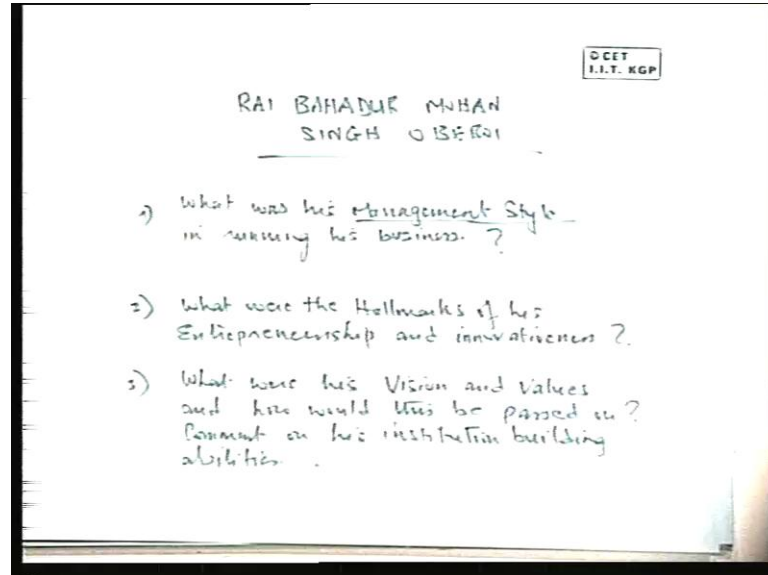 © CET
I.I.T. KGP
RAI BAHADUR MOHAN
SINGH OBEROI
1) What was his Management Style
in running his business. ?
2) What were the Hallmarks of his
Entrepreneurship and innovativeness ?.
3) What were his Vision and Values
and how would this be passed on ?
Comment on his institution building
abilities.